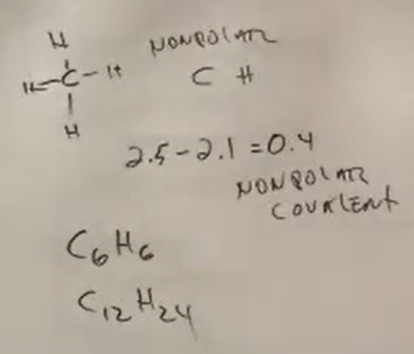 H
NONPOLAR
H-C-H
C H
H
2.5-2.1=0.4
NONPOLAR
COVALENT
C₆H₆
C₁₂H₂₄